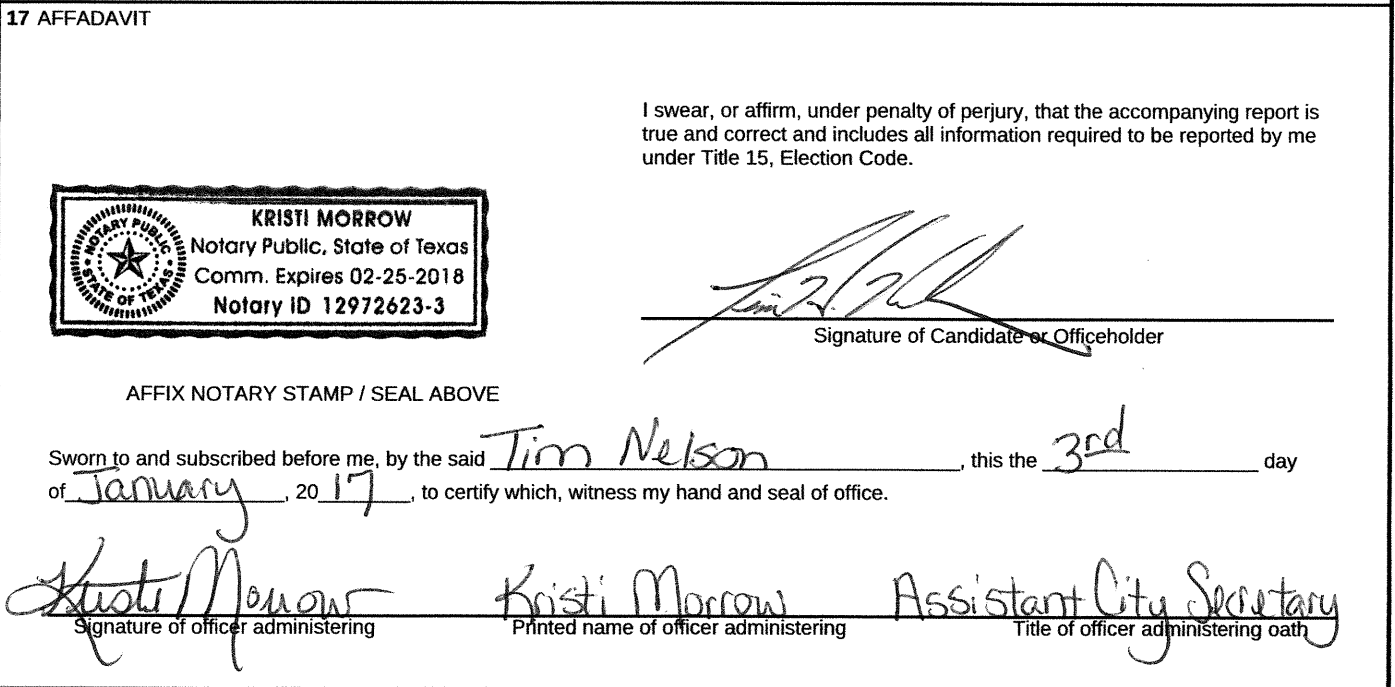 17 AFFADAVIT
I swear, or affirm, under penalty of perjury, that the accompanying report is
true and correct and includes all information required to be reported by me
under Title 15, Election Code.
NOTARY PUBLIC
STATE OF TEXAS
KRISTI MORROW
Notary Public, State of Texas
Comm. Expires 02-25-2018
Notary ID 12972623-3
Signature of Candidate or Officeholder
AFFIX NOTARY STAMP / SEAL ABOVE
Sworn to and subscribed before me, by the said Tim Nelson, this the 3rd day
of January, 2017, to certify which, witness my hand and seal of office.
Kristi Morrow Kristi Morrow Assistant City Secretary
Signature of officer administering Printed name of officer administering Title of officer administering oath